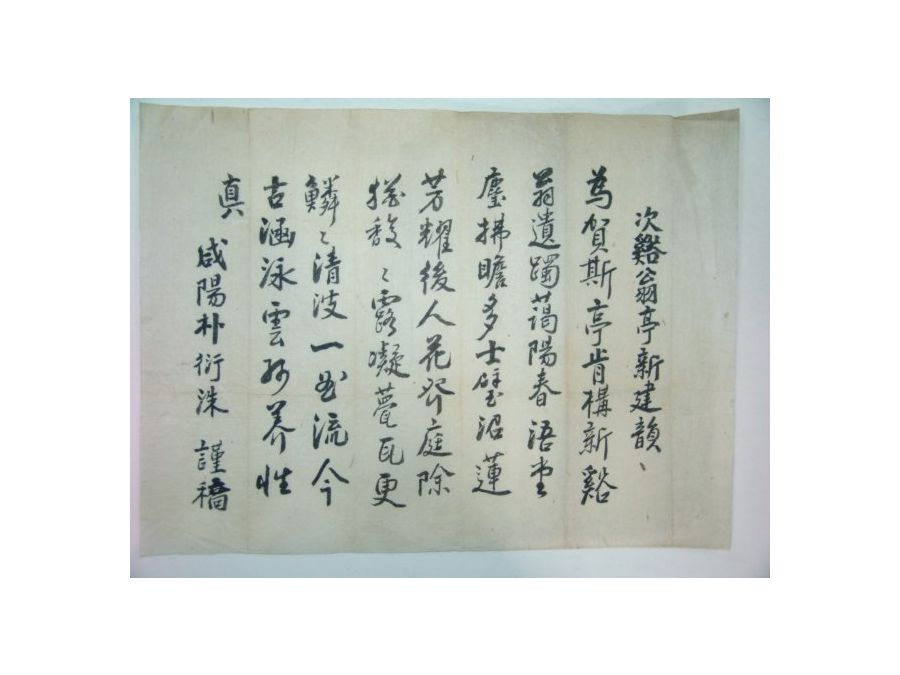 次谿翁亭新建韻
為賀斯亭肯構新谿
翁遺躅藹陽春浯堂
麈拂瞻多士璧沼蓮
芳耀後人花發庭除
猶馥〻露凝甍瓦更
鱗〻清波一曲流今
古涵泳雲仍養性
真 咸陽朴衍洙 謹稿